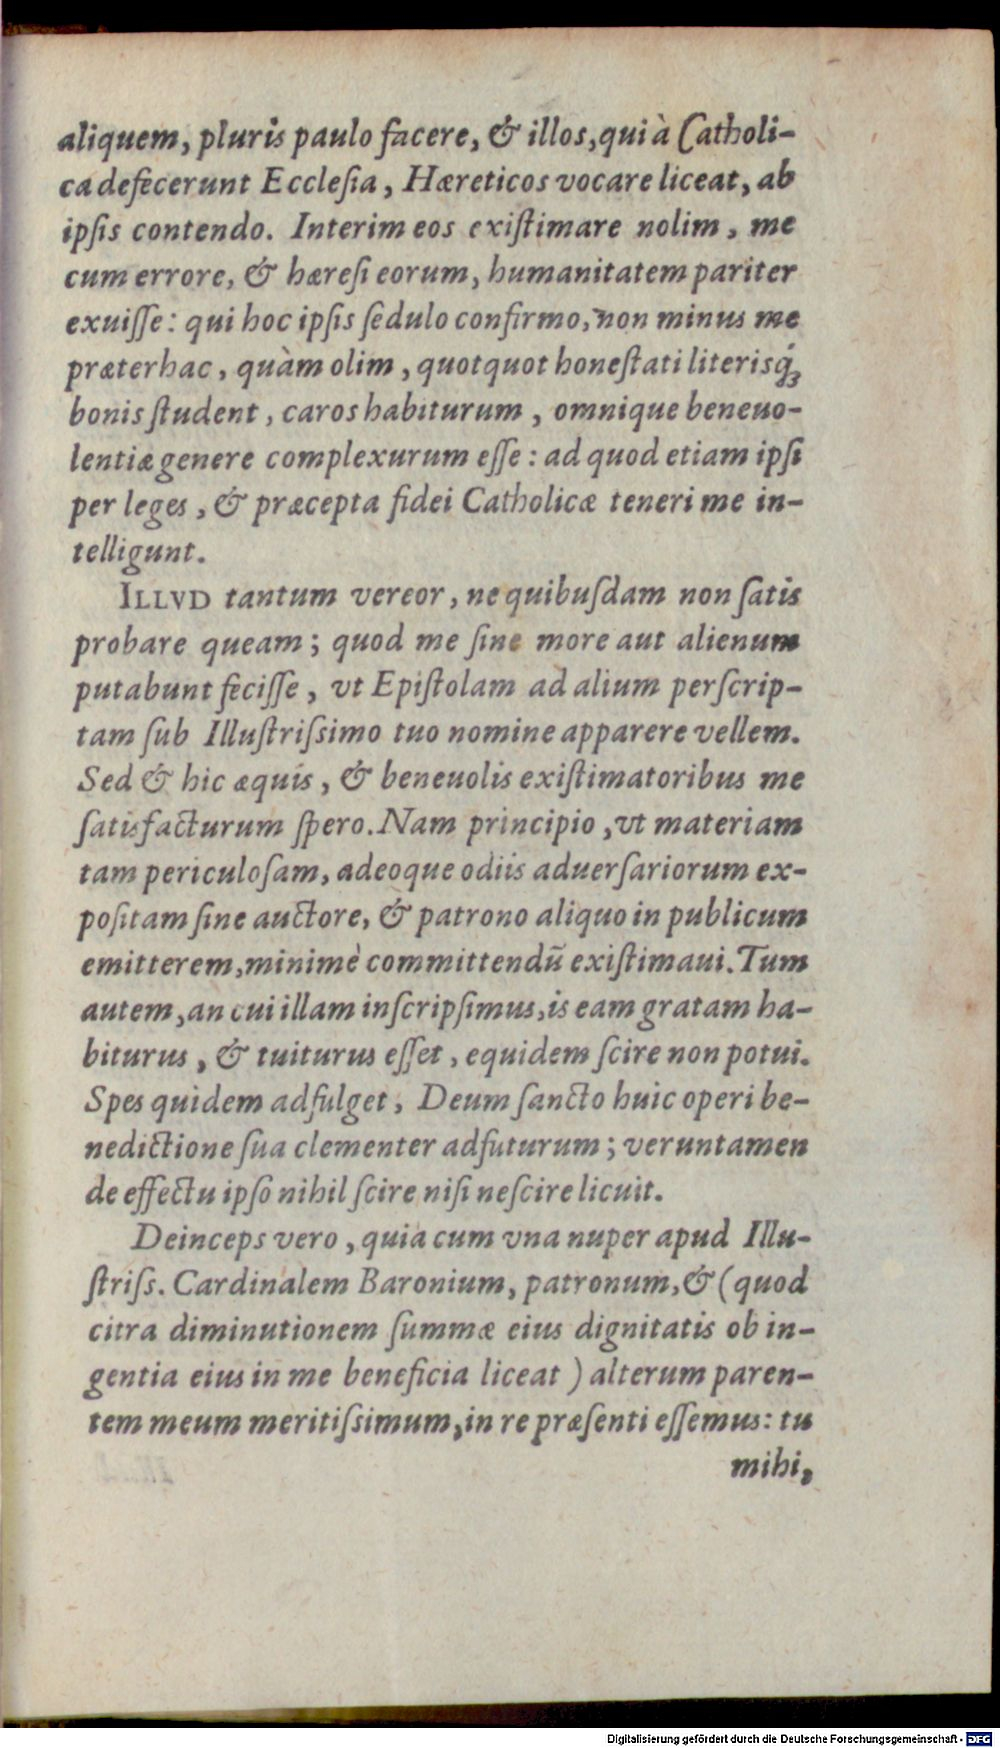 aliquem, pluris paulo facere, & illos, qui à Catholi-
ca defecerunt Ecclesia, Hæreticos vocare liceat, ab
ipsis contendo. Interim eos existimare nolim, me
cum errore, & hæresi eorum, humanitatem pariter
exuisse: qui hoc ipsis sedulo confirmo, non minus me
præterhac, quàm olim, quotquot honestati literisq́;
bonis student, caros habiturum, omnique beneuo-
lentiæ genere complexurum esse: ad quod etiam ipsi
per leges, & præcepta fidei Catholicæ teneri me in-
telligunt.
ILLVD tantum vereor, ne quibusdam non satis
probare queam; quod me sine more aut alienum
putabunt fecisse, vt Epistolam ad alium perscrip-
tam sub Illustrissimo tuo nomine apparere vellem.
Sed & hic æquis, & beneuolis existimatoribus me
satisfacturum spero. Nam principio, vt materiam
tam periculosam, adeoque odiis aduersariorum ex-
positam sine auctore, & patrono aliquo in publicum
emitterem, minimè committendū existimaui. Tum
autem, an cui illam inscripsimus, is eam gratam ha-
biturus, & tuiturus esset, equidem scire non potui.
Spes quidem adfulget, Deum sancto huic operi be-
nedictione sua clementer adfuturum; veruntamen
de effectu ipso nihil scire nisi nescire licuit.
Deinceps vero, quia cum vna nuper apud Illu-
striss. Cardinalem Baronium, patronum, & (quod
citra diminutionem summæ eius dignitatis ob in-
gentia eius in me beneficia liceat) alterum paren-
tem meum meritissimum, in re præsenti essemus: tu
mihi,
Digitalisierung gefördert durch die Deutsche Forschungsgemeinschaft - DFG